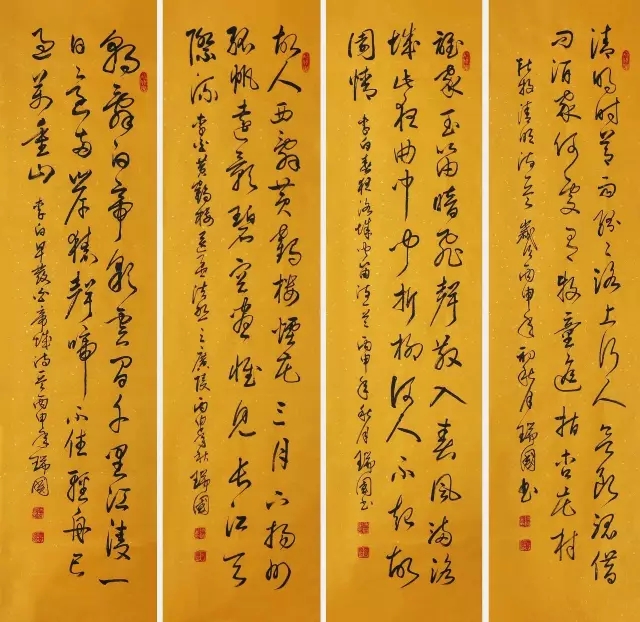 清明時節雨紛々路上行人欲斷魂借
問酒家何處有牧童遙指杏花村
杜牧清明詩意 歲次丙申年初秋月 瑞國書
誰家玉笛暗飛聲散入春風滿洛
城此夜曲中聞折柳何人不起故
園情 李白春夜洛城聞笛詩意 丙申年秋月 瑞國書
故人西辭黃鶴樓煙花三月下揚州
孤帆遠影碧空盡惟見長江天
際流 李白黃鶴樓送孟浩然之廣陵 丙申年秋 瑞國
朝辭白帝彩雲間千里江陵一
日還兩岸猿聲啼不住輕舟已
過萬重山 李白早發白帝城詩意 丙申年 瑞國